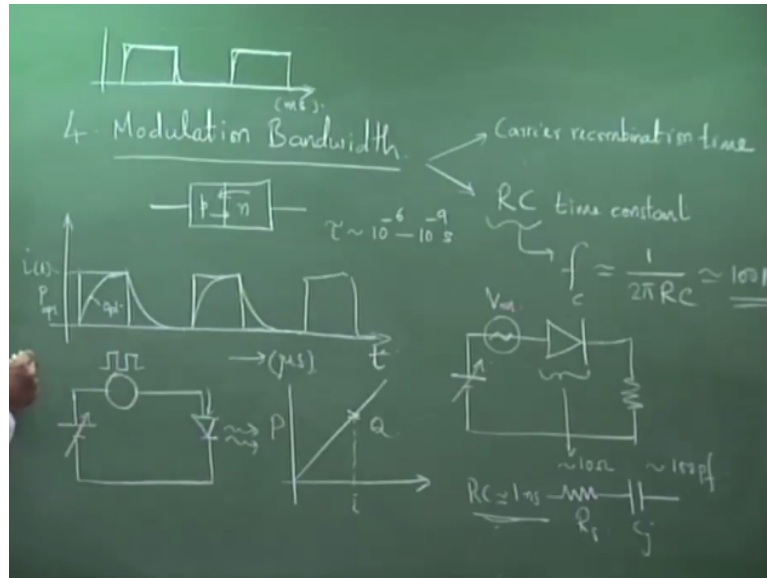 (ms).
4. Modulation Bandwidth
Carrier recombination time
RC time constant
p n
τ ~ 10⁻⁶ – 10⁻⁹ s
f_c ≃ 1/(2πRC) ≃ 100
i(t)
P_opt
opt.
t
→ (μs)
P
Q
i
~10Ω
~100pf
RC ≃ 1ns
R_s
C_j